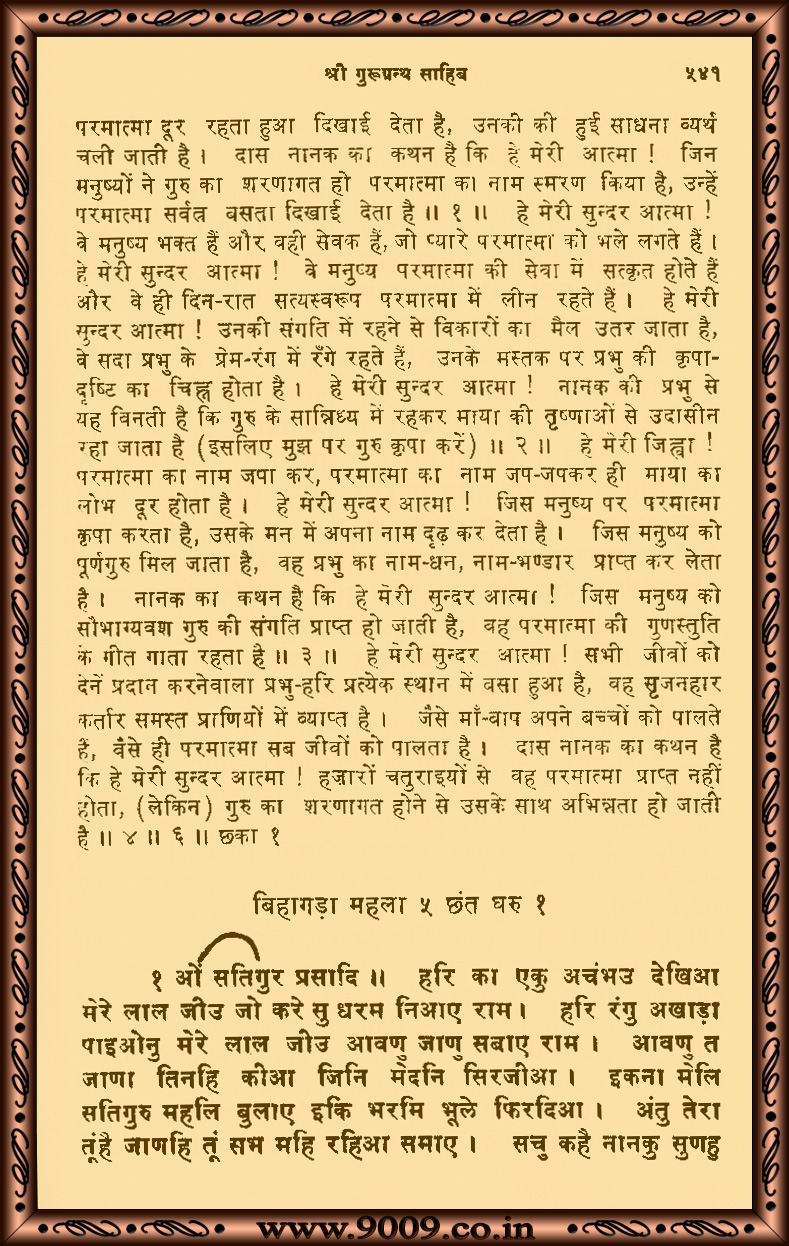 श्री गुरूग्रन्थ साहिब ५४१
परमात्मा दूर रहता हुआ दिखाई देता है, उनकी की हुई साधना व्यर्थ
चली जाती है । दास नानक का कथन है कि हे मेरी आत्मा ! जिन
मनुष्यों ने गुरु का शरणागत हो परमात्मा का नाम स्मरण किया है, उन्हें
परमात्मा सर्वत्र बसता दिखाई देता है ॥ १ ॥ हे मेरी सुन्दर आत्मा !
वे मनुष्य भक्त हैं और वही सेवक हैं, जो प्यारे परमात्मा को भले लगते हैं ।
हे मेरी सुन्दर आत्मा ! वे मनुष्य परमात्मा की सेवा में सत्कृत होते हैं
और वे ही दिन-रात सत्यस्वरूप परमात्मा में लीन रहते हैं । हे मेरी
सुन्दर आत्मा ! उनकी संगति में रहने से विकारों का मैल उतर जाता है,
वे सदा प्रभु के प्रेम-रंग में रँगे रहते हैं, उनके मस्तक पर प्रभु की कृपा-
दृष्टि का चिह्न होता है । हे मेरी सुन्दर आत्मा ! नानक की प्रभु से
यह विनती है कि गुरु के सान्निध्य में रहकर माया की तृष्णाओं से उदासीन
रहा जाता है (इसलिए मुझ पर गुरु कृपा करें) ॥ २ ॥ हे मेरी जिह्वा !
परमात्मा का नाम जपा कर, परमात्मा का नाम जप-जपकर ही माया का
लोभ दूर होता है । हे मेरी सुन्दर आत्मा ! जिस मनुष्य पर परमात्मा
कृपा करता है, उसके मन में अपना नाम दृढ़ कर देता है । जिस मनुष्य को
पूर्णगुरु मिल जाता है, वह प्रभु का नाम-धन, नाम-भण्डार प्राप्त कर लेता
है । नानक का कथन है कि हे मेरी सुन्दर आत्मा ! जिस मनुष्य को
सौभाग्यवश गुरु की संगति प्राप्त हो जाती है, वह परमात्मा की गुणस्तुति
के गीत गाता रहता है ॥ ३ ॥ हे मेरी सुन्दर आत्मा ! सभी जीवों को
देनें प्रदान करनेवाला प्रभु-हरि प्रत्येक स्थान में बसा हुआ है, वह सृजनहार
कर्तार समस्त प्राणियों में व्याप्त है । जैसे माँ-बाप अपने बच्चों को पालते
हैं, वैसे ही परमात्मा सब जीवों को पालता है । दास नानक का कथन है
कि हे मेरी सुन्दर आत्मा ! हज़ारों चतुराइयों से वह परमात्मा प्राप्त नहीं
होता, (लेकिन) गुरु का शरणागत होने से उसके साथ अभिन्नता हो जाती
है ॥ ४ ॥ ६ ॥ छका १
बिहागड़ा महला ५ छंत घरु १
१ ओं सतिगुर प्रसादि ॥ हरि का एकु अचंभउ देखिआ
मेरे लाल जीउ जो करे सु धरम निआए राम । हरि रंगु अखाड़ा
पाइओनु मेरे लाल जीउ आवणु जाणु सबाए राम । आवणु त
जाणा तिनहि कीआ जिनि मेदनि सिरजीआ । इकना मेलि
सतिगुरु महलि बुलाए इकि भरमि भूले फिरदिआ । अंतु तेरा
तूंहै जाणहि तूं सभ महि रहिआ समाए । सचु कहै नानकु सुणहु
www.9009.co.in